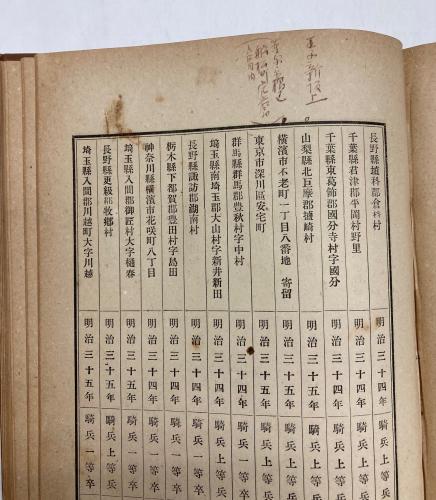 長野縣埴科郡倉科村 明治三十四年 騎兵上等兵
千葉縣君津郡平岡村野里 明治三十四年 騎兵上等兵
千葉縣東葛飾郡國分寺村字國分 明治三十四年 騎兵上等兵
山梨縣北巨摩郡 崎村 明治三十五年 騎兵上等兵
橫濱市不老町一丁目八番地 寄留 明治三十五年 騎兵上等兵
東京市深川區安宅町 明治三十五年 騎兵上等兵
群馬縣群馬郡豊秋村字中村 明治三十四年 騎兵上等兵
埼玉縣南埼玉郡大山村字新井新田 明治三十四年 騎兵上等兵
長野縣諏訪郡湖南村 明治三十四年 騎兵一等卒
栃木縣下都賀郡豊田村字島田 明治三十四年 騎兵一等卒
神奈川縣橫濱市花咲町八丁目 明治三十四年 騎兵一等卒
埼玉縣入間郡御匠村大字樋春 明治三十五年 騎兵一等卒
長野縣更級郡牧鄕村 明治三十五年 騎兵上等兵
埼玉縣入間郡川越町大字川越 明治三十五年 騎兵一等卒